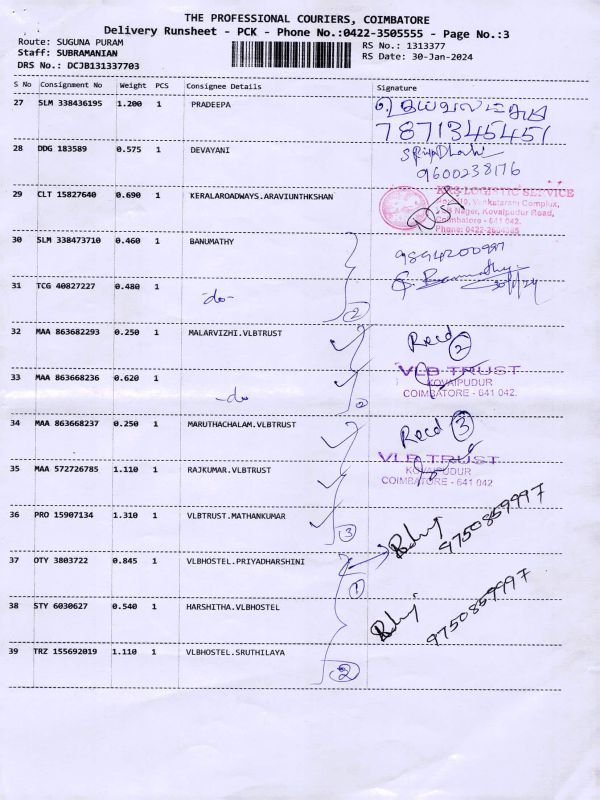 THE PROFESSIONAL COURIERS, COIMBATORE
Delivery Runsheet - PCK - Phone No.:0422-3505555 - Page No.:3
Route: SUGUNA PURAM
RS No.: 1313377
Staff: SUBRAMANIAN
RS Date: 30-Jan-2024
DRS No.: DCJB131337703
S No Consignment No Weight PCS Consignee Details Signature
27 SLM 338436195 1.200 1 PRADEEPA
7871345451
28 DDG 183589 0.575 1 DEVAYANI
9600238176
29 CLT 15827640 0.690 1 KERALAROADWAYS.ARAVIUNTHKSHAN
KRS LOGISTIC SERVICE
Venkataram Complux,
Nagar, Kovaipudur Road,
Coimbatore - 641 042.
Phone: 0422-
30 SLM 338473710 0.460 1 BANUMATHY
9894200997
31 TCG 40827227 0.480 1
-do-
30/1/24
2
32 MAA 863682293 0.250 1 MALARVIZHI.VLBTRUST
Recd 2
33 MAA 863668236 0.620 1
-do-
2
VLB TRUST
KOVAIPUDUR
COIMBATORE - 641 042.
34 MAA 863668237 0.250 1 MARUTHACHALAM.VLBTRUST
Recd 3
35 MAA 572726785 1.110 1 RAJKUMAR.VLBTRUST
VLB TRUST
KOVAIPUDUR
COIMBATORE - 641 042
36 PRO 15907134 1.310 1 VLBTRUST.MATHANKUMAR
3
9750859997
37 OTY 3803722 0.845 1 VLBHOSTEL.PRIYADHARSHINI
1
38 STY 6030627 0.540 1 HARSHITHA.VLBHOSTEL
9750859997
39 TRZ 155692019 1.110 1 VLBHOSTEL.SRUTHILAYA
2